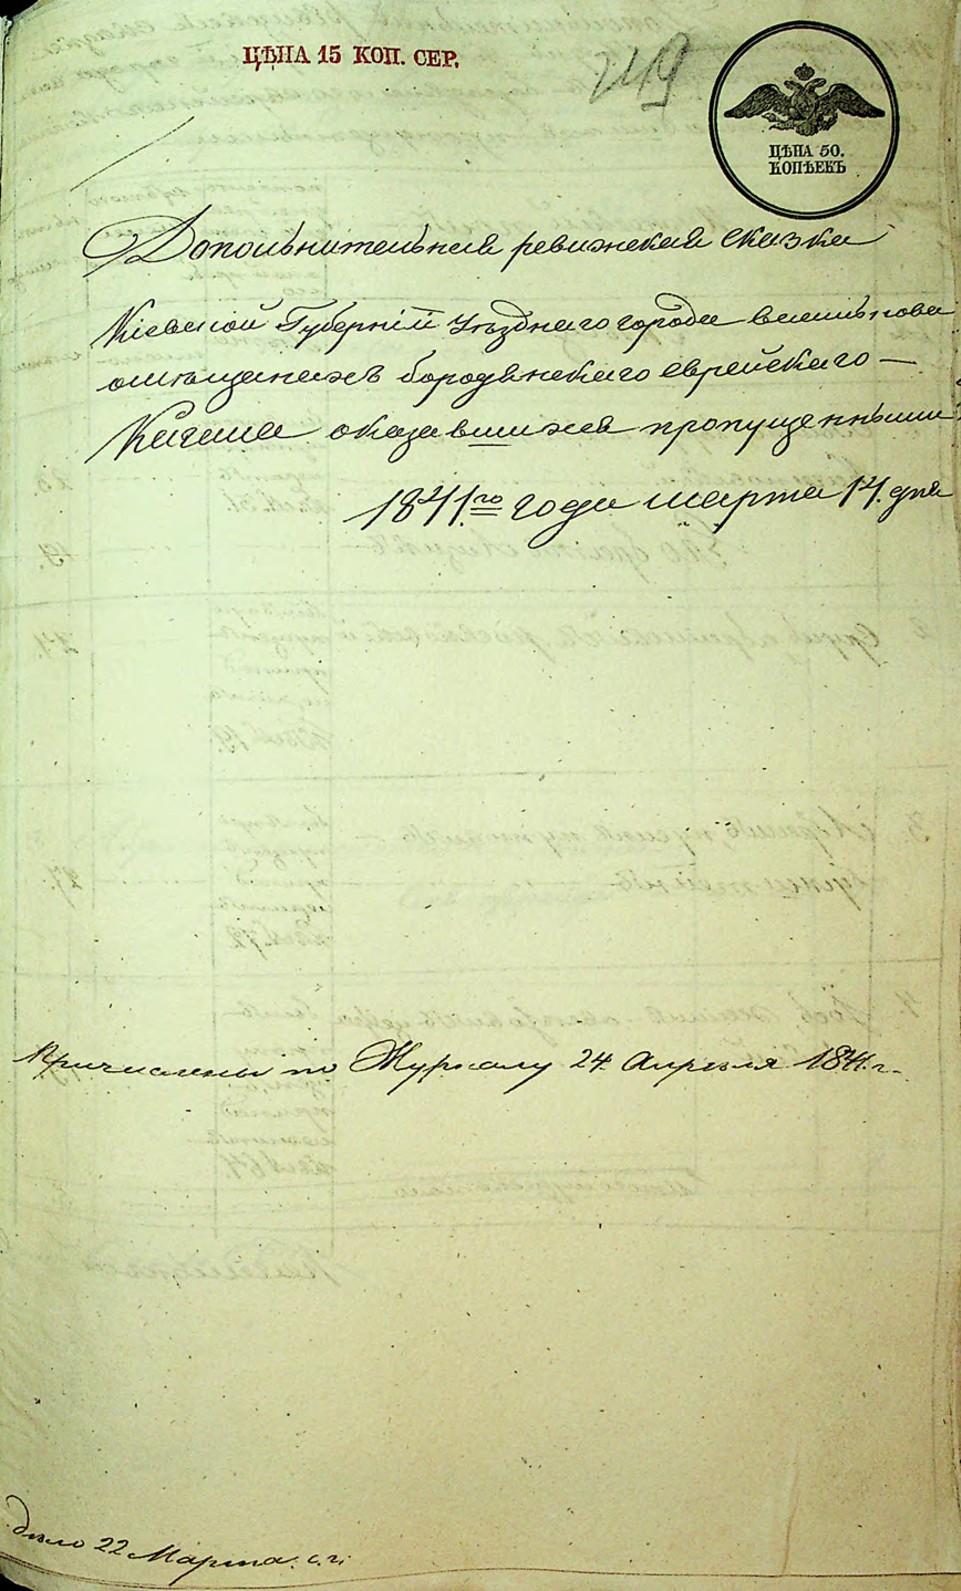 ЦѢНА 15 КОП. СЕР.
249
ЦѢНА 50.
КОПѢЕКЪ
Дополнительная ревижская сказка
Кіевской Губерніи Уѣзднаго города василькова
омѣщанахъ бородянскаго еврейскаго —
Кагала оказавшихся пропущенными
1841го года марта 14. дня
Причислены по Журналу 24 Апрѣля 1841. г.
дѣло 22 Марта. с. г.